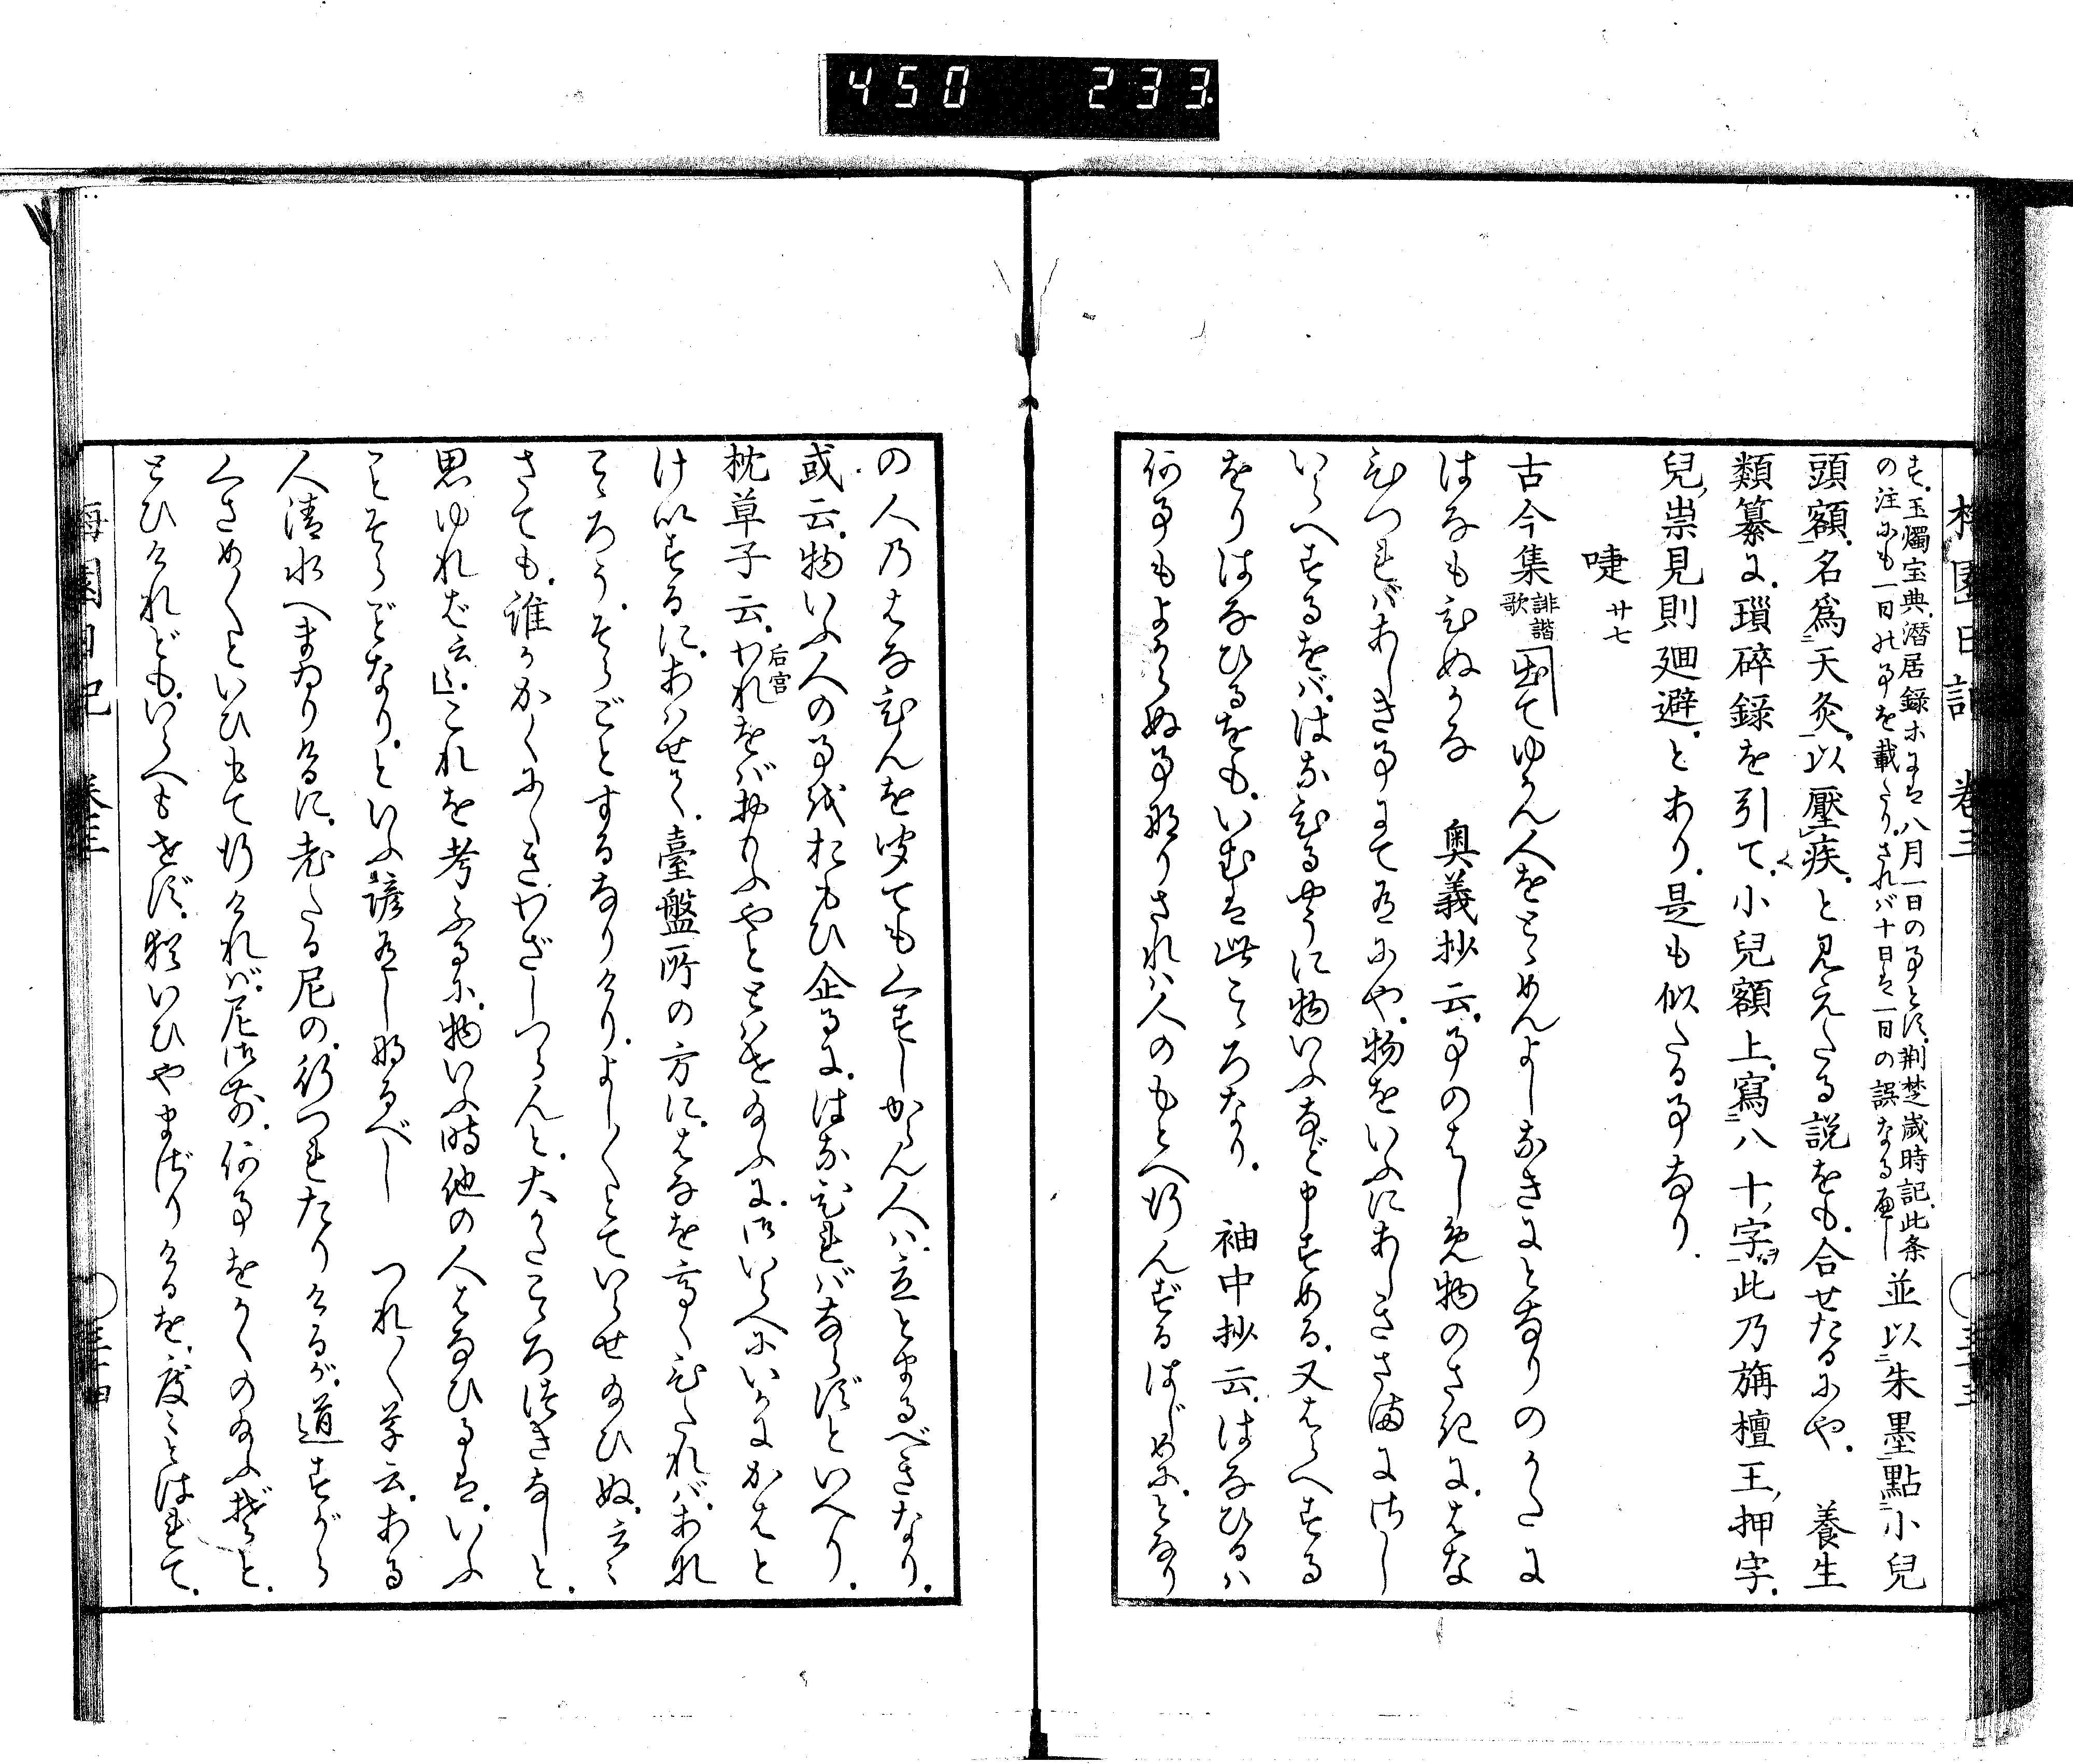 450 233
梅園日記 巻三 三十三
す。玉燭宝典。潜居録ホにも八月一日の事とす。荆楚歳時記。此条
の注にも一日の事を載たり。されバ十日は一日の誤なるべし
並以朱墨點小兒
頭額。名爲天灸。以壓疾。と見えたる説をも。合せたるにや。 養生
類纂に。瑣碎録を引て。小兒額上。寫八十字。此乃旃檀王押字。
兒祟見則廻避。とあり。是も似たる事なり。
嚏 廿七
古今集 誹諧歌 出てゆかん人をとゞめんよしなきにとなりのかたに
はなもひぬかな 奥義抄云。事のはじめ物のさきに。はな
ひつればあしき事にて有にや。物をいふにあしきさまにけし
いらへするをバ。はなひるやうに物いふなど申すめる。又はらへする
をりはなひるをも。いむは此こゝろなり。 袖中抄云。はなひるハ
何事もよからぬ事なりされハ人のもとへ行んずるはじめに。となり
の人のはなひんを聞てもくすしからん人ハ。立とまるべきなり。
或云。物いふ人の事或おもひ企るに。はなひればならずといへり。
枕草子云。后宮 われをバおもふやととはせ給ふに。御いらへにいかにかはと
けいするに。あはせて。臺盤所の方に。はなを高くひたれバ。あれ
こゝろう。そらごとするなりけり。よし〱とていらせ給ひぬ。云々
さても。誰かかくにくきわざしつらんと。大かたこゝろづきなしと。
思ゆれど云々。これを考ふるに。物いふ時他の人はなひるは。いふ
ことそらごとなり。といふ諺有しなるべし つれ〱草云。ある
人清水へまゐりけるに。老たる尼の。行つれたりけるが。道すがら
くさめ〱といひもて行けれバ。尼御前。何事をかくのたまふぞと。
とひけれども。いらへもせず。猶いひやまざりけるを。度々とはれて。
梅園日記 巻三 三十四